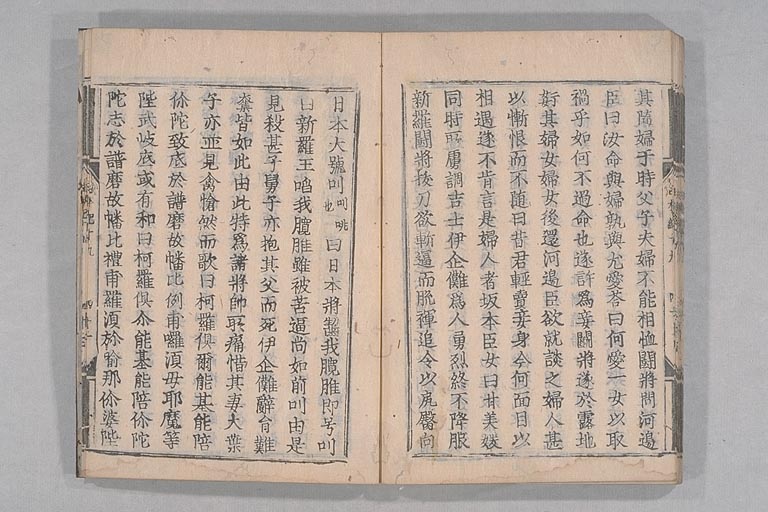 其隨婦于時父子夫婦不能相恤闘將問河邊
臣曰汝命與婦孰與尤愛荅曰何愛一女以取
禍乎如何不過命也遂許為妾闘將遂於露地
姧其婦女婦女後還河邊臣欲就談之婦人甚
以慚恨而不隨曰昔君輕賣妾身今何面目以
相遇遂不肯言是婦人者坂本臣女曰甘美媛
同時所虜調吉士伊企儺為人勇烈終不降服
新羅闘將拔刀欲斬逼而脫褌追令以尻臀向
日本大號叫叫咷也曰日本將齧我臗脽即号叫
曰新羅王啗我臗脽雖被苦逼尚如前叫由是
見殺其子舅子亦抱其父而死伊企儺辭旨難
奪皆如此由此特為諸將帥所痛惜其妻大葉
子亦並見禽愴然而歌曰柯羅俱爾能基能陪
儞陀致底於譜磨故幡比例甫囉須母耶魔等
陛武岐底或有和曰柯羅俱爾能基能陪儞陀
陀志於譜磨故幡比禮甫羅須於喻那儞婆陛